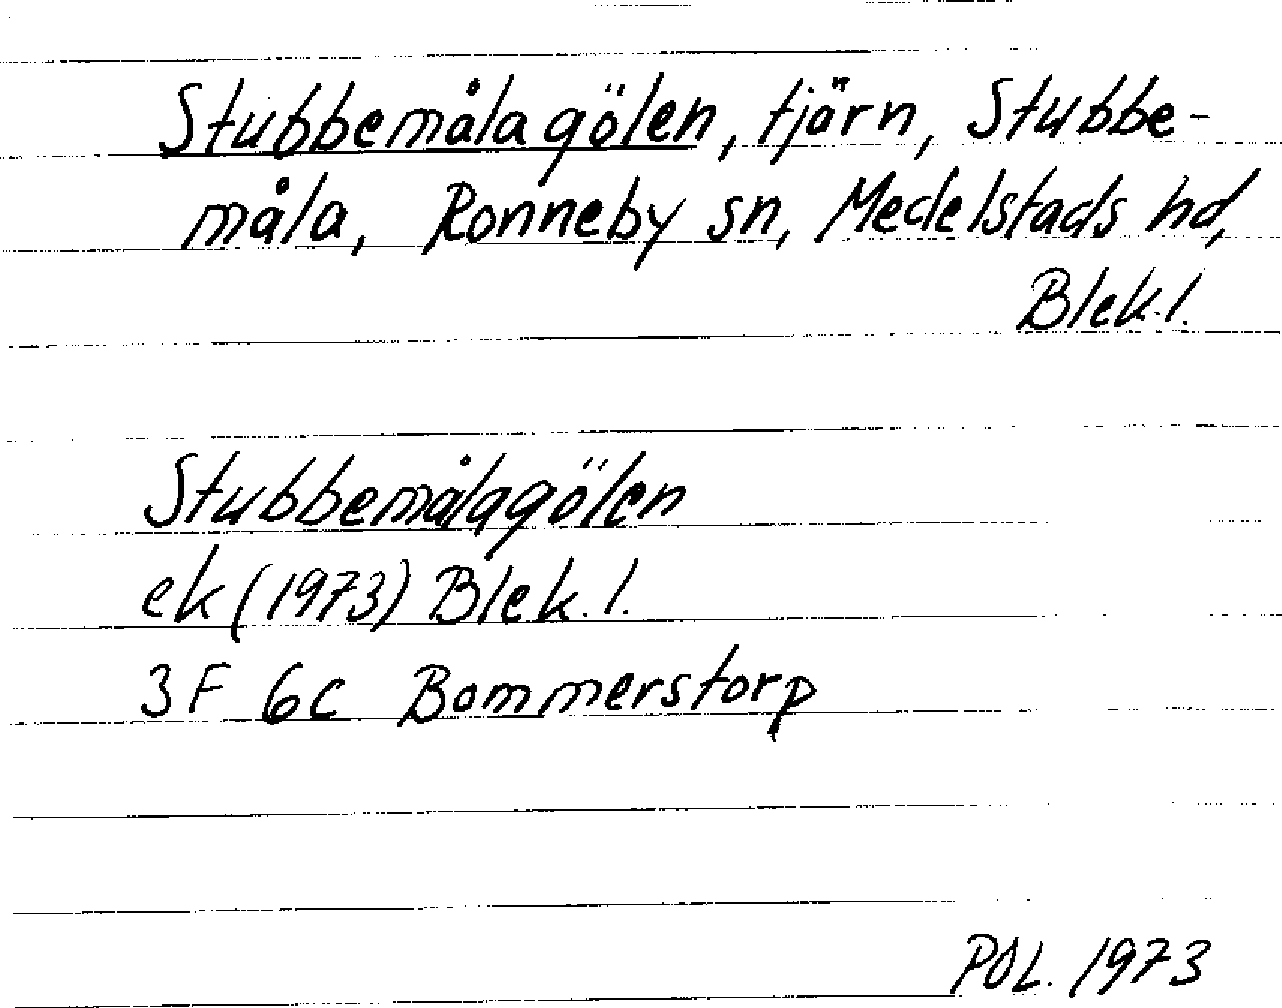 Stubbemålagölen, tjärn, Stubbe-
måla, Ronneby sn, Medelstads hd,
Blek. l.
Stubbemålagölen
ek (1973) Blek. l.
3F 6c Bommerstorp
POL. 1973